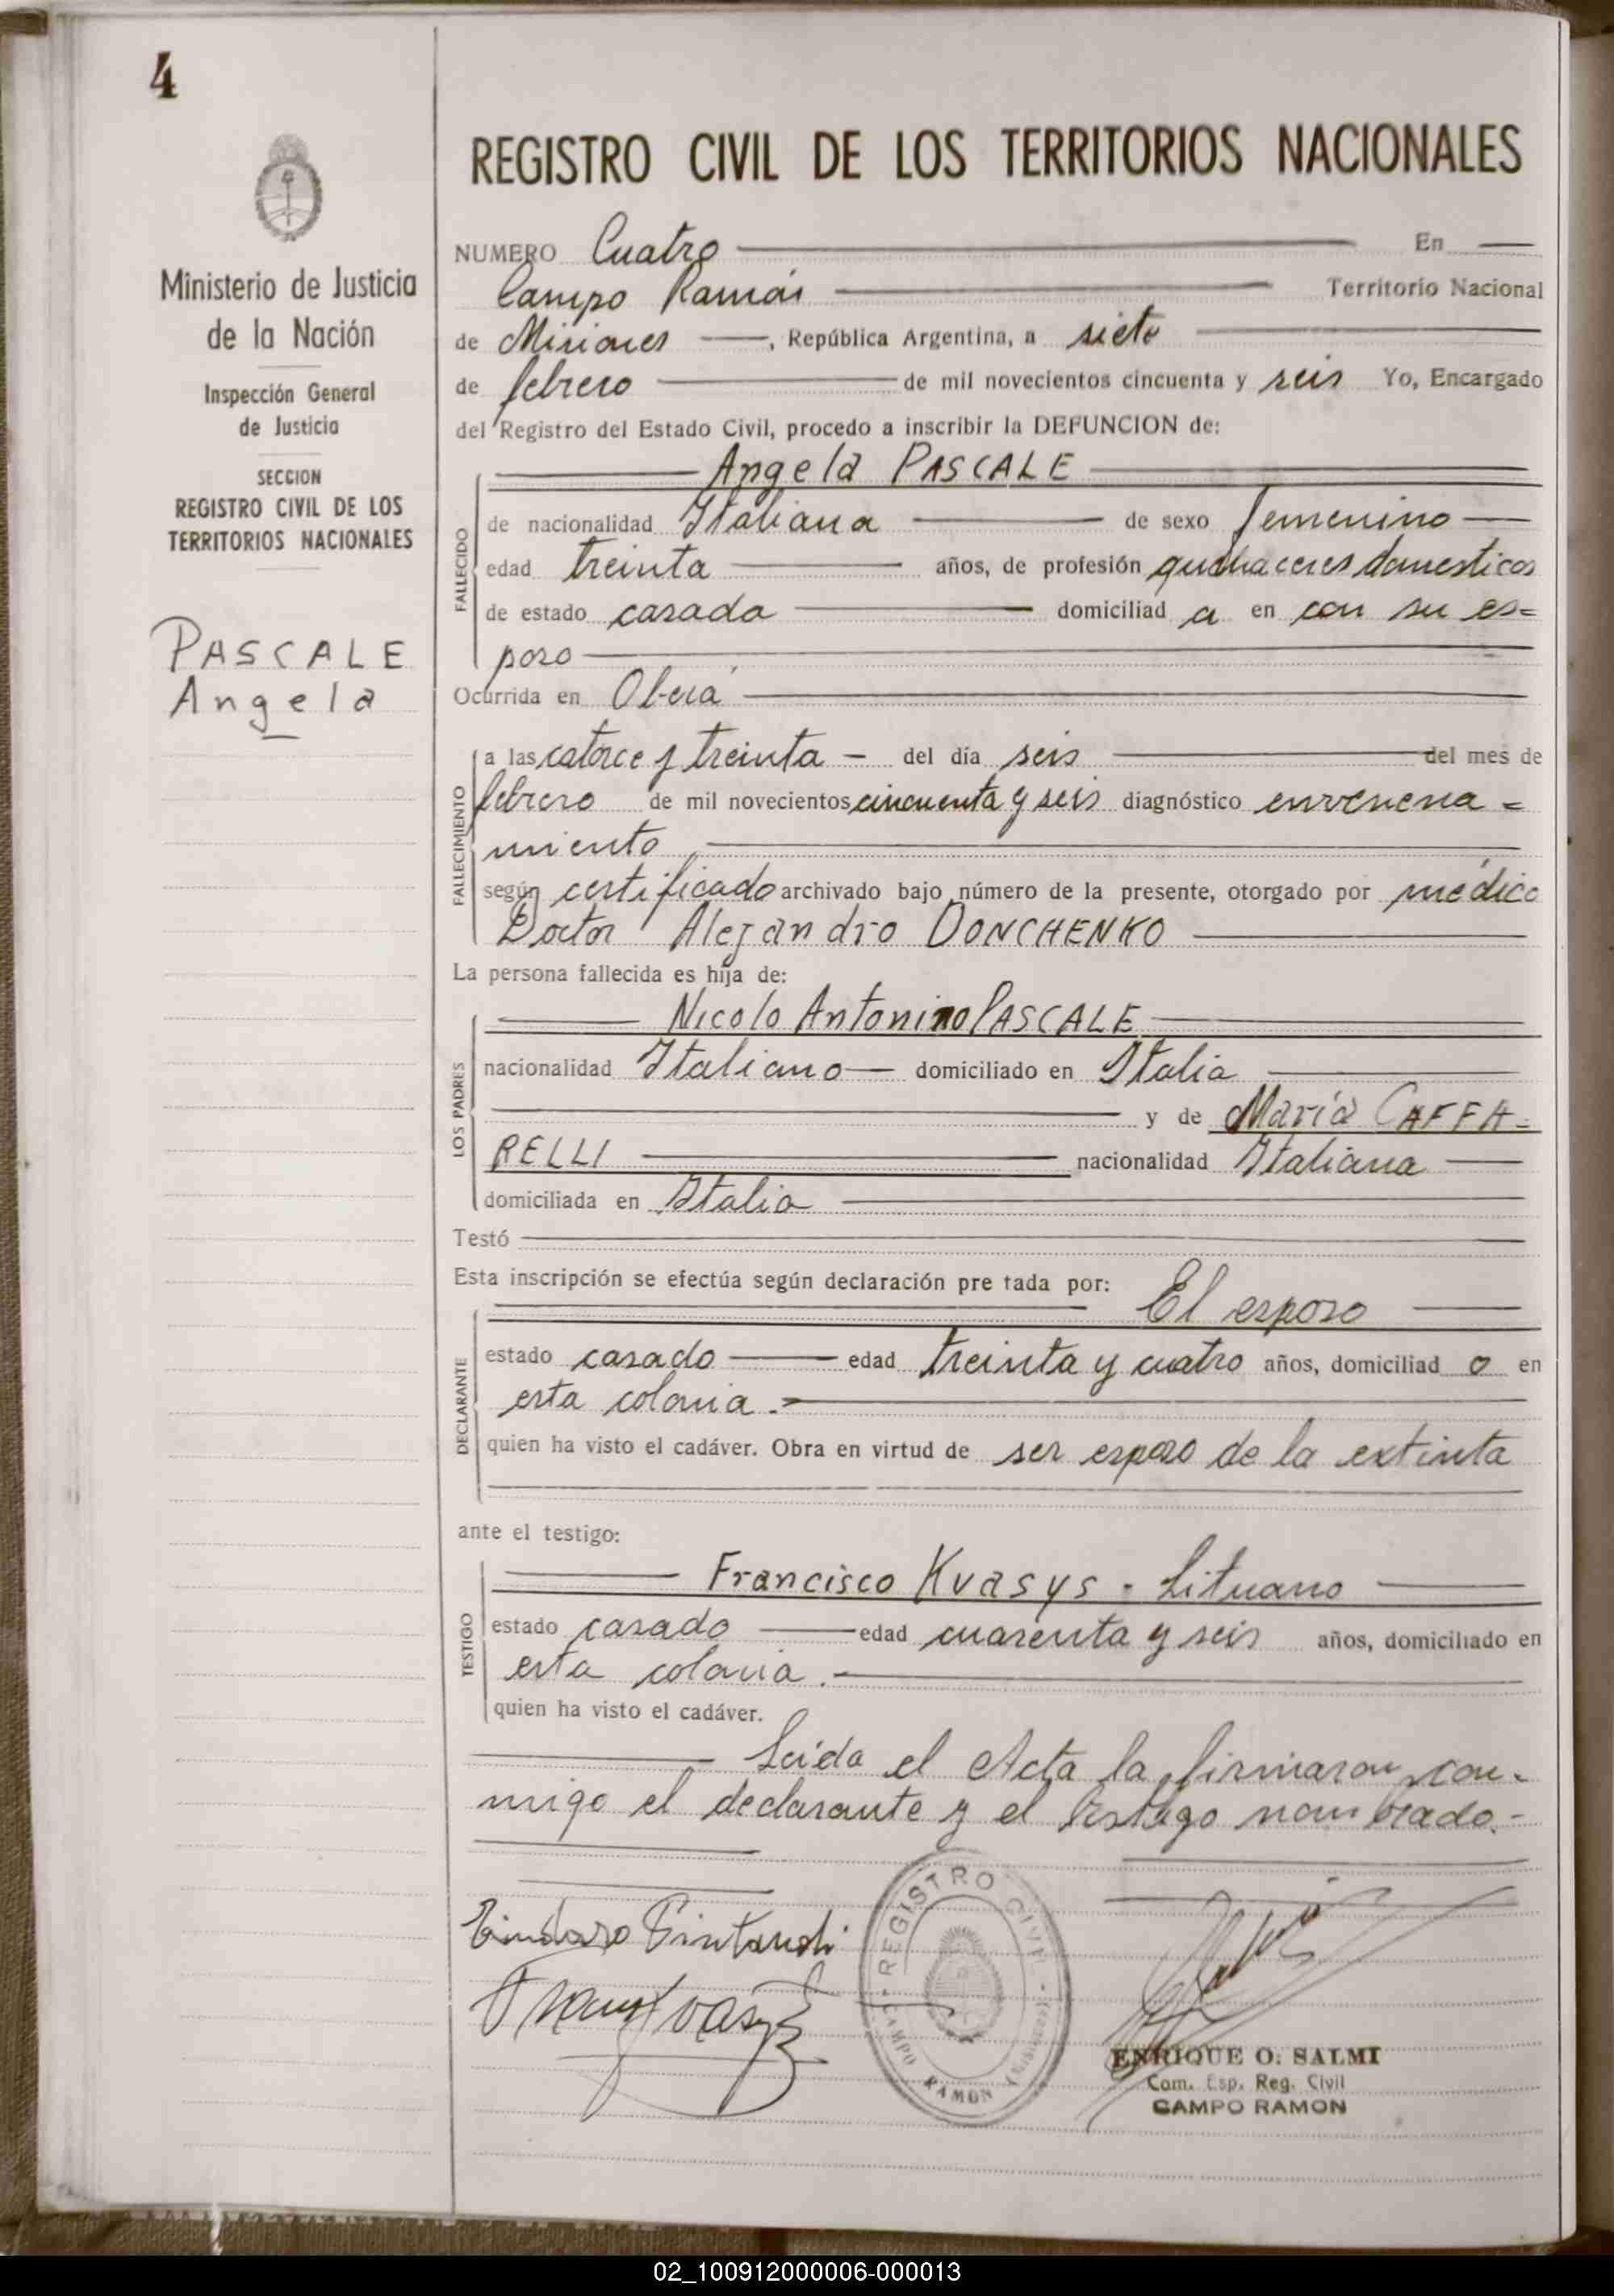 4
Ministerio de Justicia
de la Nación
Inspección General
de Justicia
SECCION
REGISTRO CIVIL DE LOS
TERRITORIOS NACIONALES
PASCALE
Angela
REGISTRO CIVIL DE LOS TERRITORIOS NACIONALES
NUMERO Cuatro En
Campo Ramón Territorio Nacional
de Misiones, República Argentina, a siete
de febrero de mil novecientos cincuenta y seis Yo, Encargado
del Registro del Estado Civil, procedo a inscribir la DEFUNCION de:
Angela PASCALE
FALLECIDO
de nacionalidad Italiana de sexo femenino
edad treinta años, de profesión quehaceres domesticos
de estado casada domiciliad a en con su es=
poso
Ocurrida en Oberá
FALLECIMIENTO
a las catorce y treinta - del día seis del mes de
febrero de mil novecientos cincuenta y seis diagnóstico envenena =
miento
según certificado archivado bajo número de la presente, otorgado por médico
Doctor Alejandro DONCHENKO
La persona fallecida es hija de:
LOS PADRES
Nicolo Antonino PASCALE
nacionalidad Italiano domiciliado en Italia
y de María CAFFA=
RELLI nacionalidad Italiana
domiciliada en Italia
Testó
Esta inscripción se efectúa según declaración pre tada por:
El esposo
DECLARANTE
estado casado edad treinta y cuatro años, domiciliad o en
esta colonia.-
quien ha visto el cadáver. Obra en virtud de ser esposo de la extinta
ante el testigo:
TESTIGO
Francisco Kvasys - Lituano
estado casado edad cuarenta y seis años, domiciliado en
esta colonia.
quien ha visto el cadáver.
Leida el Acta la firmaron con-
migo el declarante y el testigo nombrado.-
REGISTRO CIVIL
CAMPO RAMON (Misiones)
ENRIQUE O. SALMI
Com. Esp. Reg. Civil
CAMPO RAMON
02_100912000006-000013